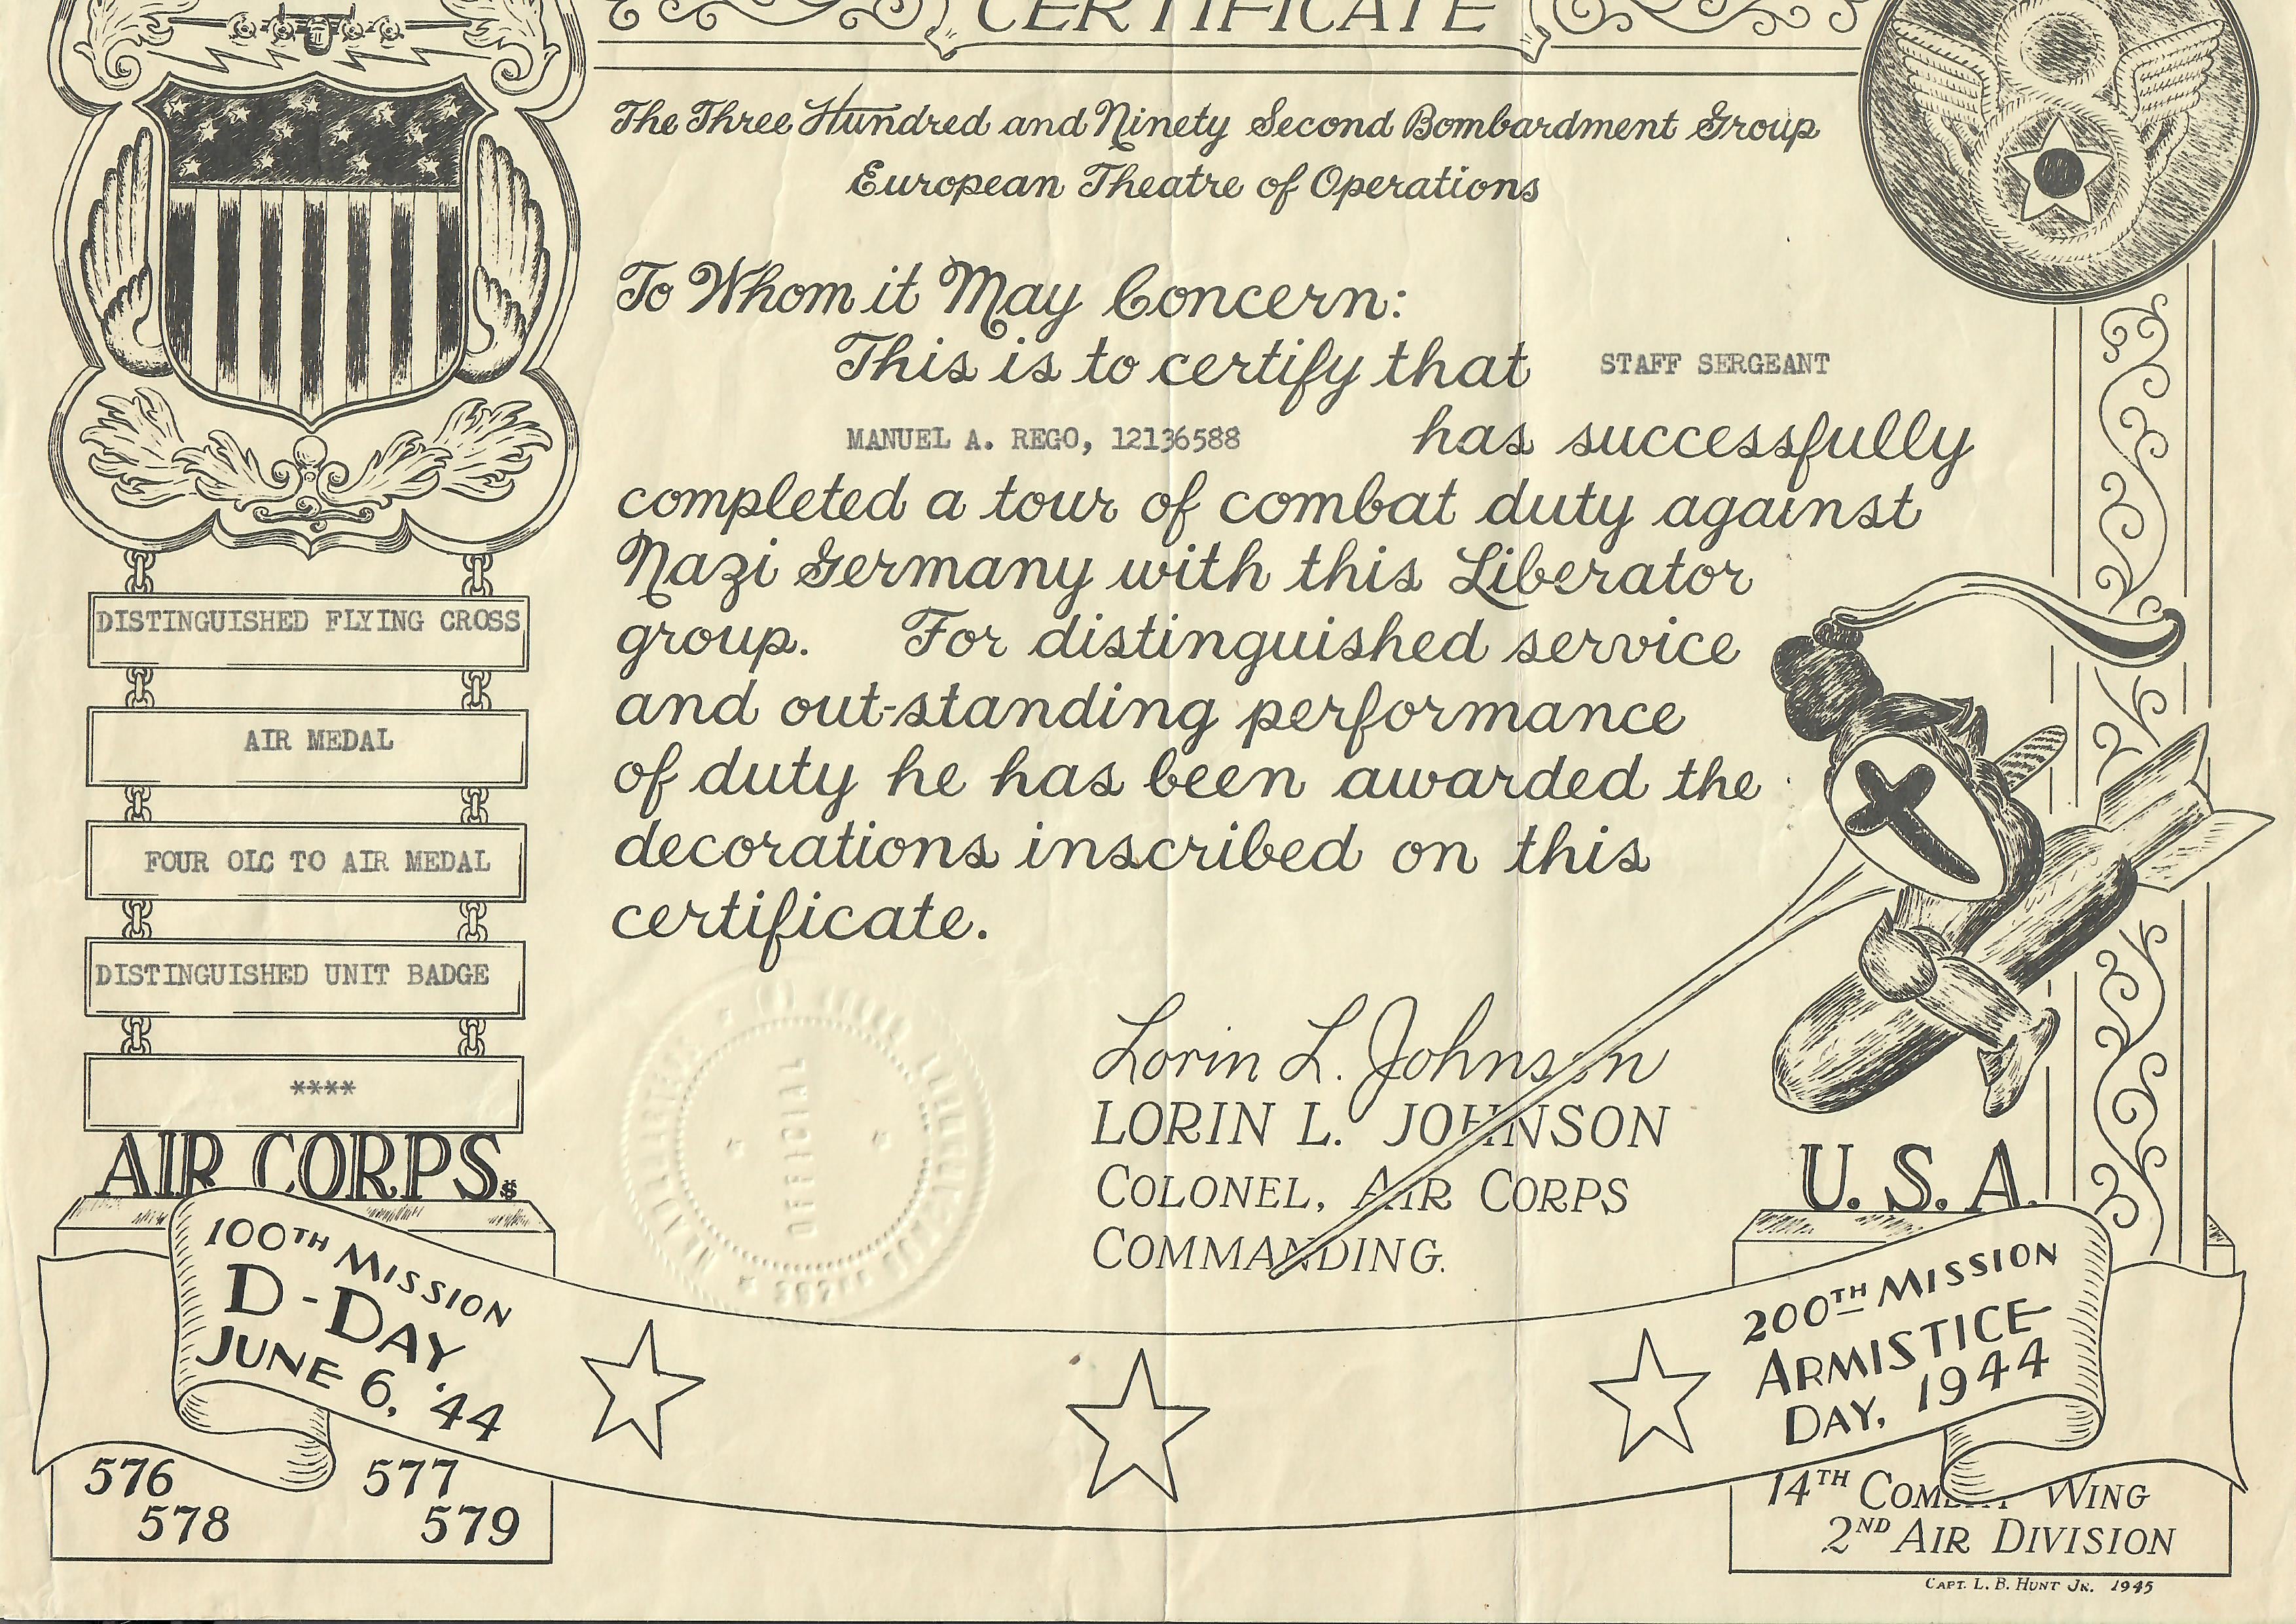 CERTIFICATE
The Three Hundred and Ninety Second Bombardment Group
European Theatre of Operations
To Whom it May Concern:
This is to certify that STAFF SERGEANT
MANUEL A. REGO, 12136588 has successfully
completed a tour of combat duty against
Nazi Germany with this Liberator
group. For distinguished service
and out-standing performance
of duty he has been awarded the
decorations inscribed on this
certificate.
DISTINGUISHED FLYING CROSS
AIR MEDAL
FOUR OLC TO AIR MEDAL
DISTINGUISHED UNIT BADGE
****
AIR CORPS
Lorin L. Johnson
LORIN L. JOHNSON
COLONEL, AIR CORPS
COMMANDING.
OFFICIAL
U.S.A.
100TH MISSION
D-DAY
JUNE 6, '44
200TH MISSION
ARMISTICE
DAY, 1944
576 577
578 579
14TH COMBAT WING
2ND AIR DIVISION
CAPT. L. B. HUNT JR. 1945